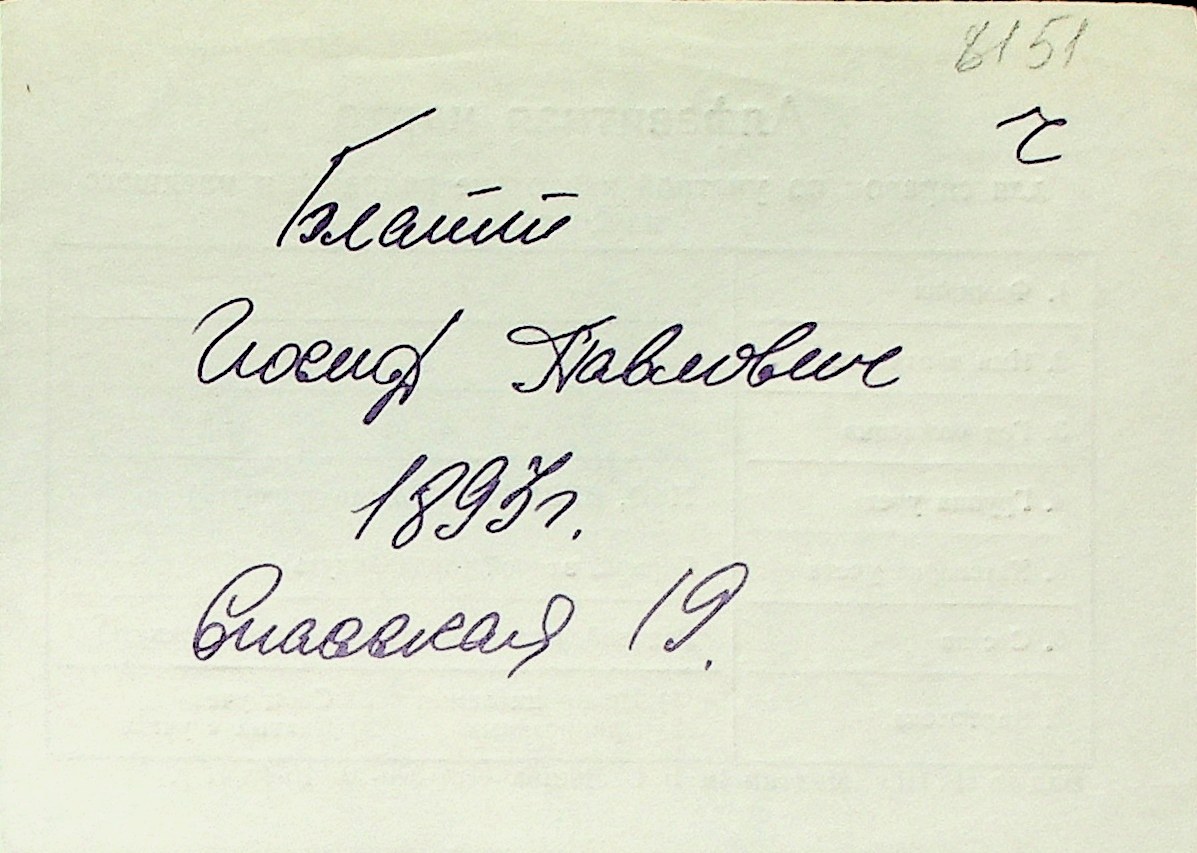 8151
ч
Блатт
Иосиф Павлович
1893г.
Спасская 19.